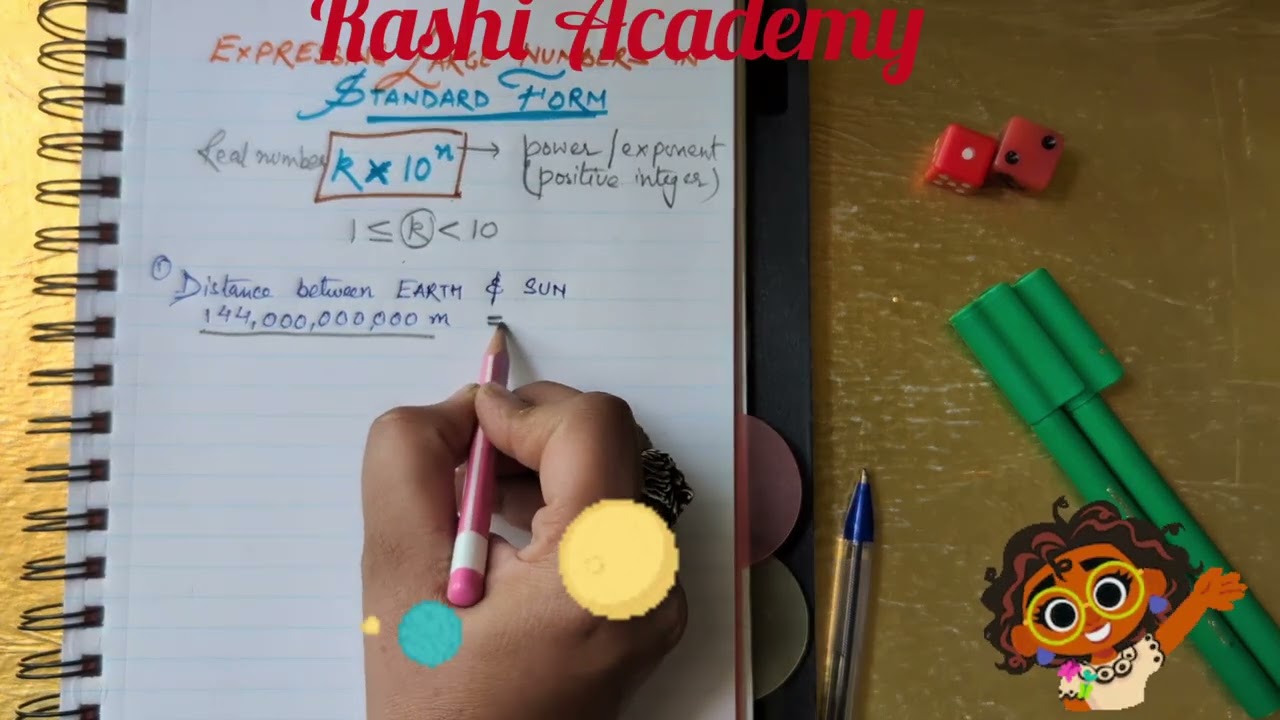 Rashi Academy
EXPRESSING LARGE NUMBERS IN
STANDARD FORM
Real number k × 10ⁿ → power/exponent
(positive integer)
1 ≤ k < 10
① Distance between EARTH & SUN
144,000,000,000 m =